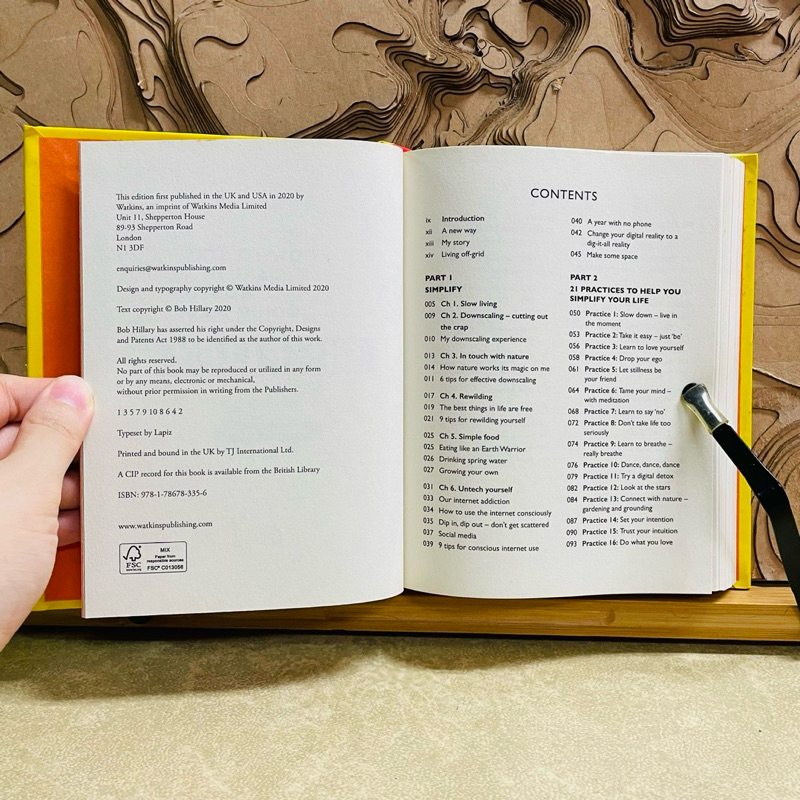 This edition first published in the UK and USA in 2020 by
Watkins, an imprint of Watkins Media Limited
Unit 11, Shepperton House
89-93 Shepperton Road
London
N1 3DF
enquiries@watkinspublishing.com
Design and typography copyright © Watkins Media Limited 2020
Text copyright © Bob Hillary 2020
Bob Hillary has asserted his right under the Copyright, Designs
and Patents Act 1988 to be identified as the author of this work.
All rights reserved.
No part of this book may be reproduced or utilized in any form
or by any means, electronic or mechanical,
without prior permission in writing from the Publishers.
1 3 5 7 9 10 8 6 4 2
Typeset by Lapiz
Printed and bound in the UK by TJ International Ltd.
A CIP record for this book is available from the British Library
ISBN: 978-1-78678-335-6
www.watkinspublishing.com
FSC
MIX
Paper from
responsible sources
FSC® C013056
CONTENTS
ix Introduction
xii A new way
xiii My story
xiv Living off-grid
PART 1
SIMPLIFY
005 Ch 1. Slow living
009 Ch 2. Downscaling – cutting out
the crap
010 My downscaling experience
013 Ch 3. In touch with nature
014 How nature works its magic on me
011 6 tips for effective downscaling
017 Ch 4. Rewilding
019 The best things in life are free
021 9 tips for rewilding yourself
025 Ch 5. Simple food
025 Eating like an Earth Warrior
026 Drinking spring water
027 Growing your own
031 Ch 6. Untech yourself
033 Our internet addiction
034 How to use the internet consciously
035 Dip in, dip out – don't get scattered
037 Social media
039 9 tips for conscious internet use
040 A year with no phone
042 Change your digital reality to a
dig-it-all reality
045 Make some space
PART 2
21 PRACTICES TO HELP YOU
SIMPLIFY YOUR LIFE
050 Practice 1: Slow down – live in
the moment
053 Practice 2: Take it easy – just 'be'
056 Practice 3: Learn to love yourself
058 Practice 4: Drop your ego
061 Practice 5: Let stillness be
your friend
064 Practice 6: Tame your mind –
with meditation
068 Practice 7: Learn to say 'no'
072 Practice 8: Don't take life too
seriously
074 Practice 9: Learn to breathe –
really breathe
076 Practice 10: Dance, dance, dance
079 Practice 11: Try a digital detox
082 Practice 12: Look at the stars
084 Practice 13: Connect with nature –
gardening and grounding
087 Practice 14: Set your intention
090 Practice 15: Trust your intuition
093 Practice 16: Do what you love